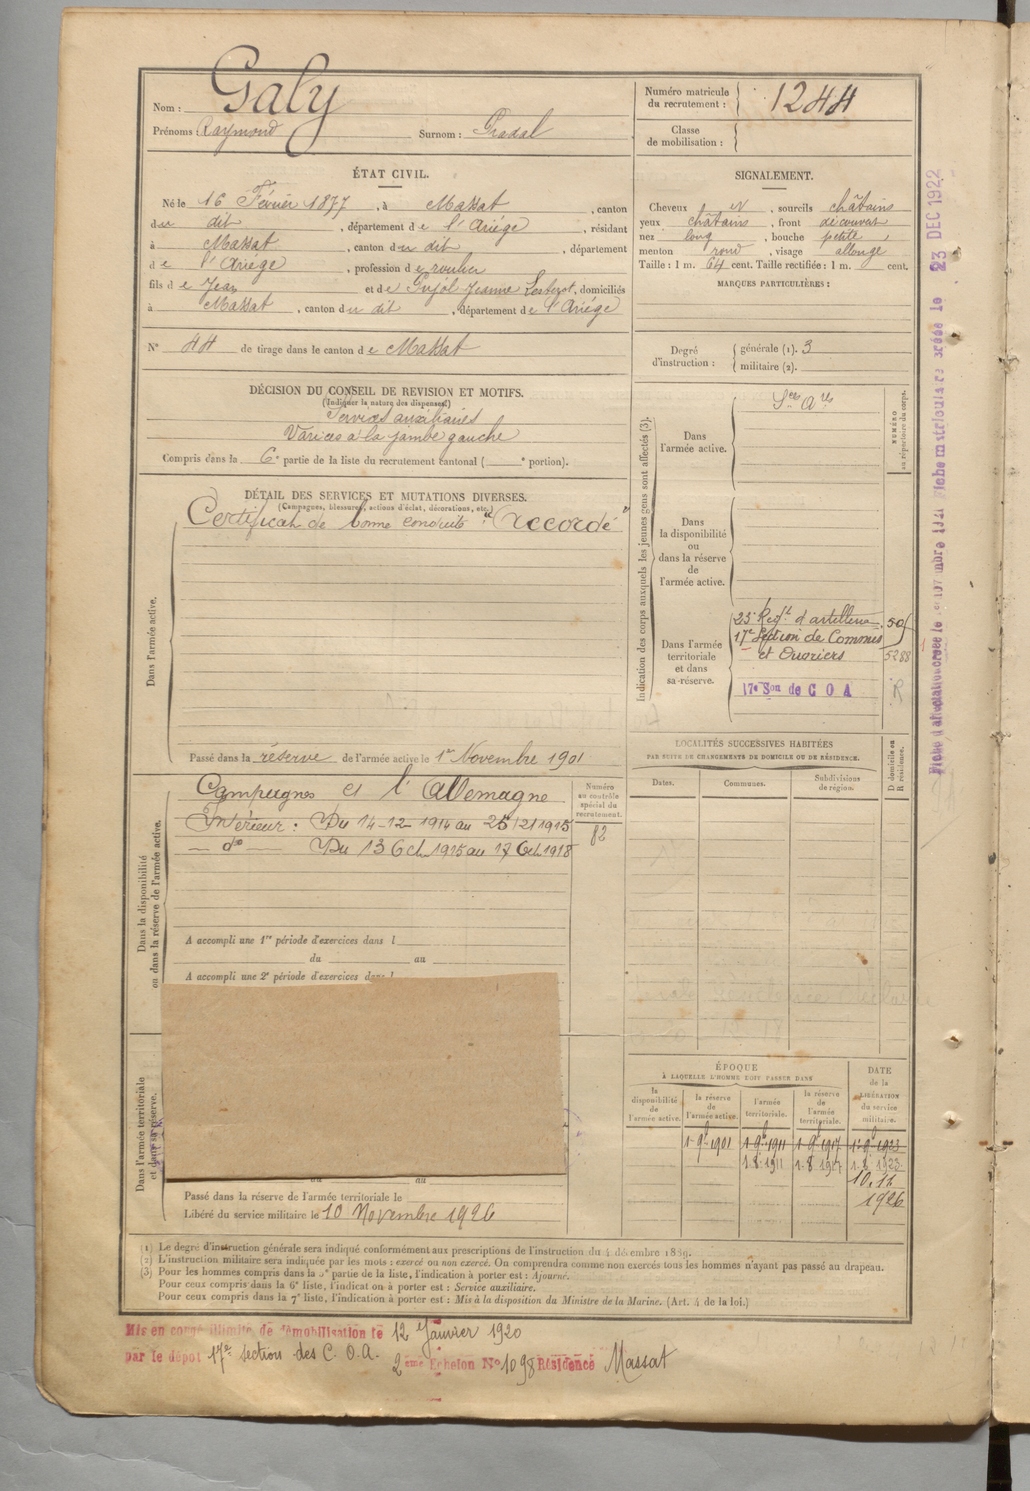 Nom : Galy
Prénoms Raymond Surnom : Gradal
Numéro matricule du recrutement : 1244
Classe de mobilisation :
ÉTAT CIVIL.
Né le 16 Février 1877, à Massat, canton
du dit, département de l'Ariège, résidant
à Massat, canton du dit, département
de l'Ariège, profession de roulier
fils de Jean et de Pujol Jeanne, domiciliés
à Massat, canton du dit, département de l'Ariège
N° 44 de tirage dans le canton de Massat
SIGNALEMENT.
Cheveux et, sourcils châtains
yeux châtains, front découvert
nez long, bouche petite,
menton rond, visage allongé
Taille : 1 m. 64 cent. Taille rectifiée : 1 m. cent.
MARQUES PARTICULIÈRES :
Degré d'instruction : générale (1). 3
militaire (2).
DÉCISION DU CONSEIL DE REVISION ET MOTIFS.
(Indiquer la nature des dispenses.)
Services auxiliaires
Varices à la jambe gauche
Compris dans la 6e partie de la liste du recrutement cantonal ( e portion).
DÉTAIL DES SERVICES ET MUTATIONS DIVERSES.
(Campagnes, blessures, actions d'éclat, décorations, etc.)
Dans l'armée active.
Certificat de bonne conduite "Accordé"
Passé dans la réserve de l'armée active le 1er Novembre 1901
Indication des corps auxquels les jeunes gens sont affectés (3).
NUMÉRO au répertoire du corps.
Dans l'armée active.
Ses Ares
Dans la disponibilité ou dans la réserve de l'armée active.
Dans l'armée territoriale et dans sa réserve.
23e Regt d'artillerie 50
17e Section de Commis
et Ouvriers 5288
17e Son de C O A R
LOCALITÉS SUCCESSIVES HABITÉES
PAR SUITE DE CHANGEMENTS DE DOMICILE OU DE RÉSIDENCE.
Dates. Communes. Subdivisions de région. D domicile ou R résidence.
Dans la disponibilité ou dans la réserve de l'armée active.
Campagnes et l'Allemagne
Intérieur : Du 14-12-1914 au
do Du 13 Oct. 1915 au 17 Oct. 1918
Numéro au contrôle spécial du recrutement.
82
A accompli une 1re période d'exercices dans l
du au
A accompli une 2e période d'exercices dans l
Dans l'armée territoriale et dans sa réserve.
du au
Passé dans la réserve de l'armée territoriale le
Libéré du service militaire le 10 Novembre 1926
ÉPOQUE
À LAQUELLE L'HOMME DOIT PASSER DANS
la disponibilité de l'armée active.
la réserve de l'armée active.
l'armée territoriale.
la réserve de l'armée territoriale.
DATE de la LIBÉRATION du service militaire.
1-9b 1901 1-9b 1911 1-9b 1917 1-9b 1923
1.8 1911 1.8 1917 1.8 1923
10.11
1926
(1) Le degré d'instruction générale sera indiqué conformément aux prescriptions de l'instruction du 4 décembre 1889.
(2) L'instruction militaire sera indiquée par les mots : exercé ou non exercé. On comprendra comme non exercés tous les hommes n'ayant pas passé au drapeau.
(3) Pour les hommes compris dans la 5e partie de la liste, l'indication à porter est : Ajourné.
Pour ceux compris dans la 6e liste, l'indication à porter est : Service auxiliaire.
Pour ceux compris dans la 7e liste, l'indication à porter est : Mis à la disposition du Ministre de la Marine. (Art. 4 de la loi.)
Mis en congé illimité de démobilisation le 12 Janvier 1920
par le dépôt 17e section des C.O.A. 2eme Echelon No 1098 Résidence Massat
matriculaire créée le 23 DEC 1922